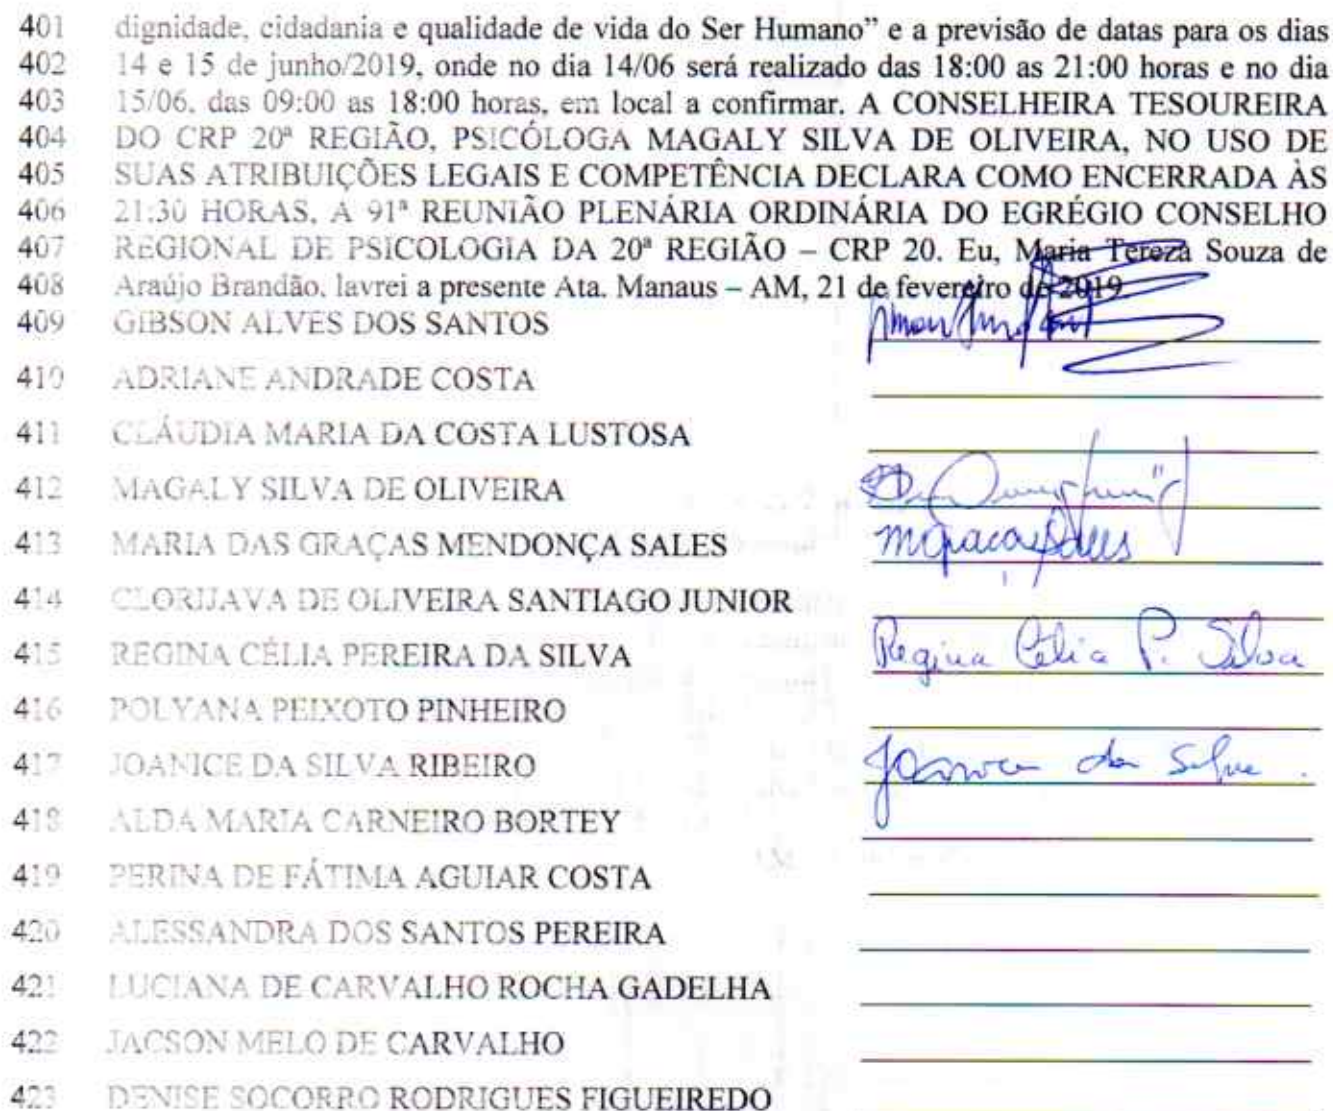 401 dignidade, cidadania e qualidade de vida do Ser Humano” e a previsão de datas para os dias
402 14 e 15 de junho/2019, onde no dia 14/06 será realizado das 18:00 as 21:00 horas e no dia
403 15/06, das 09:00 as 18:00 horas, em local a confirmar. A CONSELHEIRA TESOUREIRA
404 DO CRP 20ª REGIÃO, PSICÓLOGA MAGALY SILVA DE OLIVEIRA, NO USO DE
405 SUAS ATRIBUIÇÕES LEGAIS E COMPETÊNCIA DECLARA COMO ENCERRADA ÀS
406 21:30 HORAS, A 91ª REUNIÃO PLENÁRIA ORDINÁRIA DO EGRÉGIO CONSELHO
407 REGIONAL DE PSICOLOGIA DA 20ª REGIÃO – CRP 20. Eu, Maria Tereza Souza de
408 Araújo Brandão, lavrei a presente Ata. Manaus – AM, 21 de fevereiro de 2019
409 GIBSON ALVES DOS SANTOS
410 ADRIANE ANDRADE COSTA
411 CLÁUDIA MARIA DA COSTA LUSTOSA
412 MAGALY SILVA DE OLIVEIRA
413 MARIA DAS GRAÇAS MENDONÇA SALES
414 CLORIJAVA DE OLIVEIRA SANTIAGO JUNIOR
415 REGINA CÉLIA PEREIRA DA SILVA Regina Célia P. Silva
416 POLYANA PEIXOTO PINHEIRO
417 JOANICE DA SILVA RIBEIRO Joanice da Silva
418 ALDA MARIA CARNEIRO BORTEY
419 PERINA DE FÁTIMA AGUIAR COSTA
420 ALESSANDRA DOS SANTOS PEREIRA
421 LUCIANA DE CARVALHO ROCHA GADELHA
422 JACSON MELO DE CARVALHO
423 DENISE SOCORRO RODRIGUES FIGUEIREDO